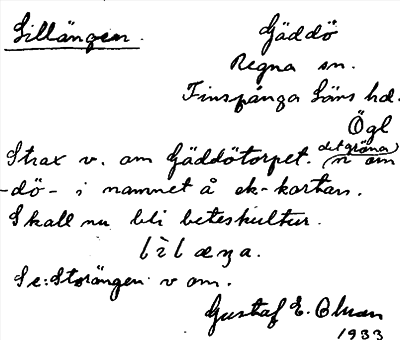 Lillängen.
Gäddö
Regna sn.
Finspånga Läns hd.
Ögl
Strax v. om Gäddötorpet. (det gröna) n om
-dö- i namnet å ek-kartan.
Skall nu bli beteskultur.
Se: Storängen v om.
Gustaf E.
1933